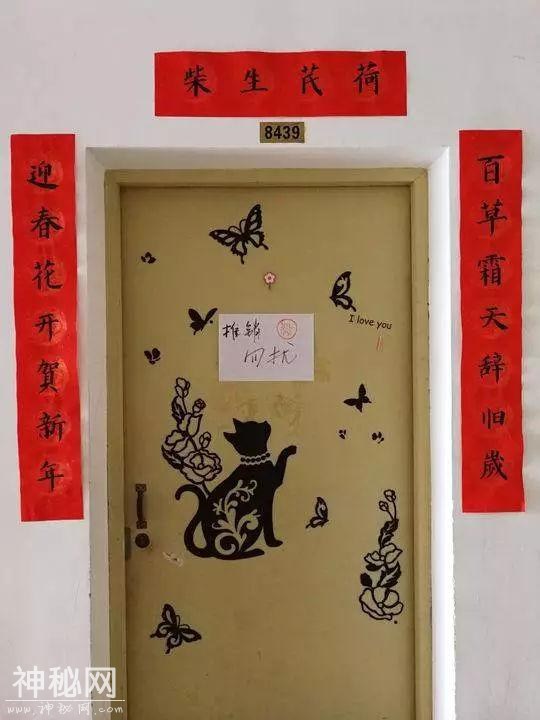 荷芪生柴
8439
百草霜天辞旧歲
迎春花开賀新年
I love you
推销
勿扰
神秘网
www.神秘网.com